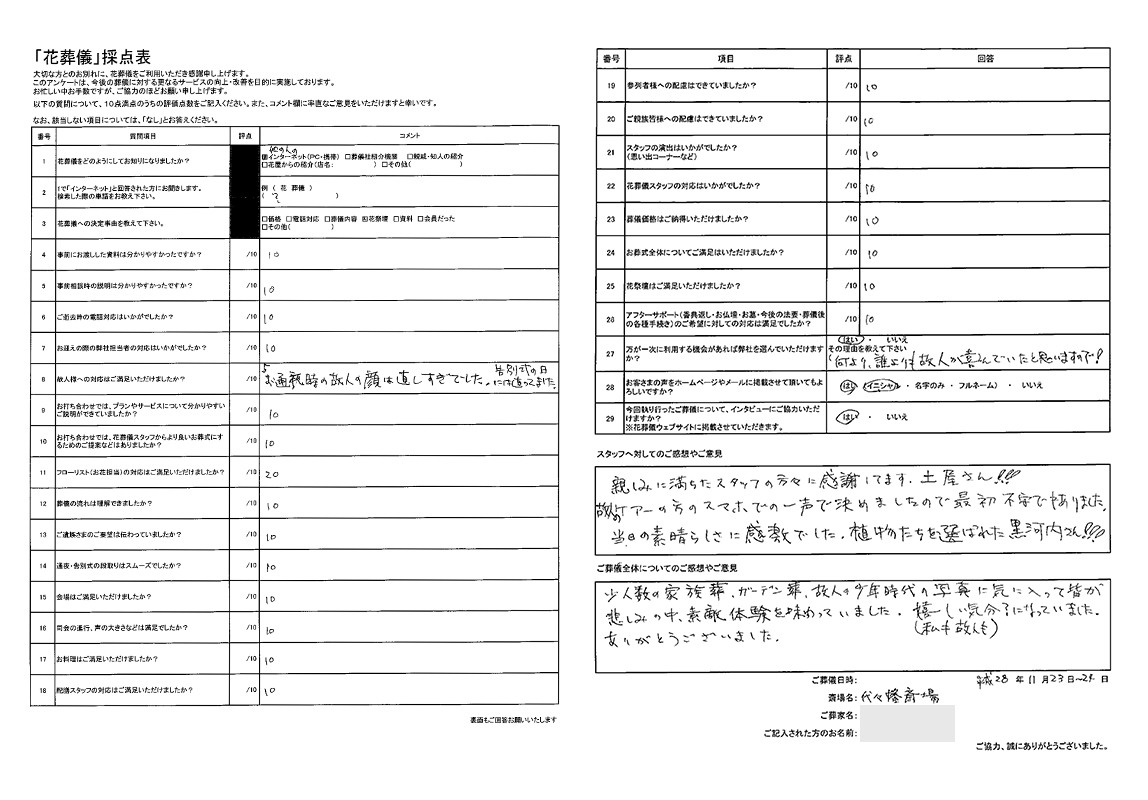 「花葬儀」採点表
大切な方とのお別れに、花葬儀をご利用いただき感謝申し上げます。
このアンケートは、今後の葬儀に対する更なるサービスの向上・改善を目的に実施しております。
お忙しい中お手数ですが、ご協力のほどお願い申し上げます。
以下の質問について、10点満点のうちの評価点数をご記入ください。また、コメント欄に率直なご意見をいただけますと幸いです。
なお、該当しない項目については、「なし」とお答えください。
番号 質問項目 評点 コメント
1 花葬儀をどのようにしてお知りになりましたか?
他の人の
インターネット(PC・携帯) □葬儀社紹介機関 □親戚・知人の紹介
□花屋からの紹介(店名: ) □その他( )
2 1で「インターネット」と回答された方にお聞きします。
検索した際の単語をお教え下さい。
例 ( 花 葬儀 )
( ? )
3 花葬儀への決定事由を教えて下さい。
□価格 □電話対応 □葬儀内容 ☒花祭壇 □資料 □会員だった
□その他( )
4 事前にお渡しした資料は分かりやすかったですか? /10 10
5 事前相談時の説明は分かりやすかったですか? /10 10
6 ご逝去時の電話対応はいかがでしたか? /10 10
7 お迎えの際の弊社担当者の対応はいかがでしたか? /10 10
8 故人様への対応はご満足いただけましたか? /10 5
お通夜時の故人の顔は直しすぎでした。告別式の日
には直ってました。
9 お打ち合わせでは、プランやサービスについて分かりやすい
ご説明ができていましたか? /10 10
10 お打ち合わせでは、花葬儀スタッフからより良いお葬式にす
るためのご提案などはありましたか? /10 10
11 フローリスト(お花担当)の対応はご満足いただけましたか? /10 20
12 葬儀の流れは理解できましたか? /10 10
13 ご遺族さまのご要望は伝わっていましたか? /10 10
14 通夜・告別式の段取りはスムーズでしたか? /10 10
15 会場はご満足いただけましたか? /10 10
16 司会の進行、声の大きさなどは満足でしたか? /10 10
17 お料理はご満足いただけましたか? /10 10
18 配膳スタッフの対応はご満足いただけましたか? /10 10
裏面もご回答お願いいたします
番号 項目 評点 回答
19 参列者様への配慮はできていましたか? /10 10
20 ご親族皆様への配慮はできていましたか? /10 10
21 スタッフの演出はいかがでしたか?
(思い出コーナーなど) /10 10
22 花葬儀スタッフの対応はいかがでしたか? /10 10
23 葬儀価格はご納得いただけましたか? /10 10
24 お葬式全体についてご満足はいただけましたか? /10 10
25 花祭壇はご満足いただけましたか? /10 10
26 アフターサポート(香典返し・お仏壇・お墓・今後の法要・葬儀後
の各種手続き)のご希望に対しての対応は満足でしたか? /10 10
27 万が一次に利用する機会があれば弊社を選んでいただけます
か?
はい ・ いいえ
その理由を教えて下さい
(何より、誰よりも故人が喜んでいたと思いますので!
28 お客さまの声をホームページやメールに掲載させて頂いてもよ
ろしいですか?
はい (イニシャル ・ 名字のみ ・ フルネーム) ・ いいえ
29 今回執り行ったご葬儀について、インタビューにご協力いただ
けますか?
※花葬儀ウェブサイトに掲載させていただきます。
はい ・ いいえ
スタッフへ対してのご感想やご意見
親しみに満ちたスタッフの方々に感謝してます。土屋さん!!!
故人のケアーの方のスマホでの一声で決めましたので最初不安でありました。
当日の素晴らしさに感激でした。植物たちを選ばれた黒河内さん!!!
ご葬儀全体についてのご感想やご意見
少人数の家族葬、ガーデン葬、故人の少年時代の写真に気に入って皆が
悲しみの中、素敵体験を味わっていました。嬉しい気分になっていました。
(私も故人も)
ありがとうございました。
ご葬儀日時: 平成 28 年 11 月 23 日〜24 日
斎場名: 代々幡斎場
ご葬家名:
ご記入された方のお名前:
ご協力、誠にありがとうございました。